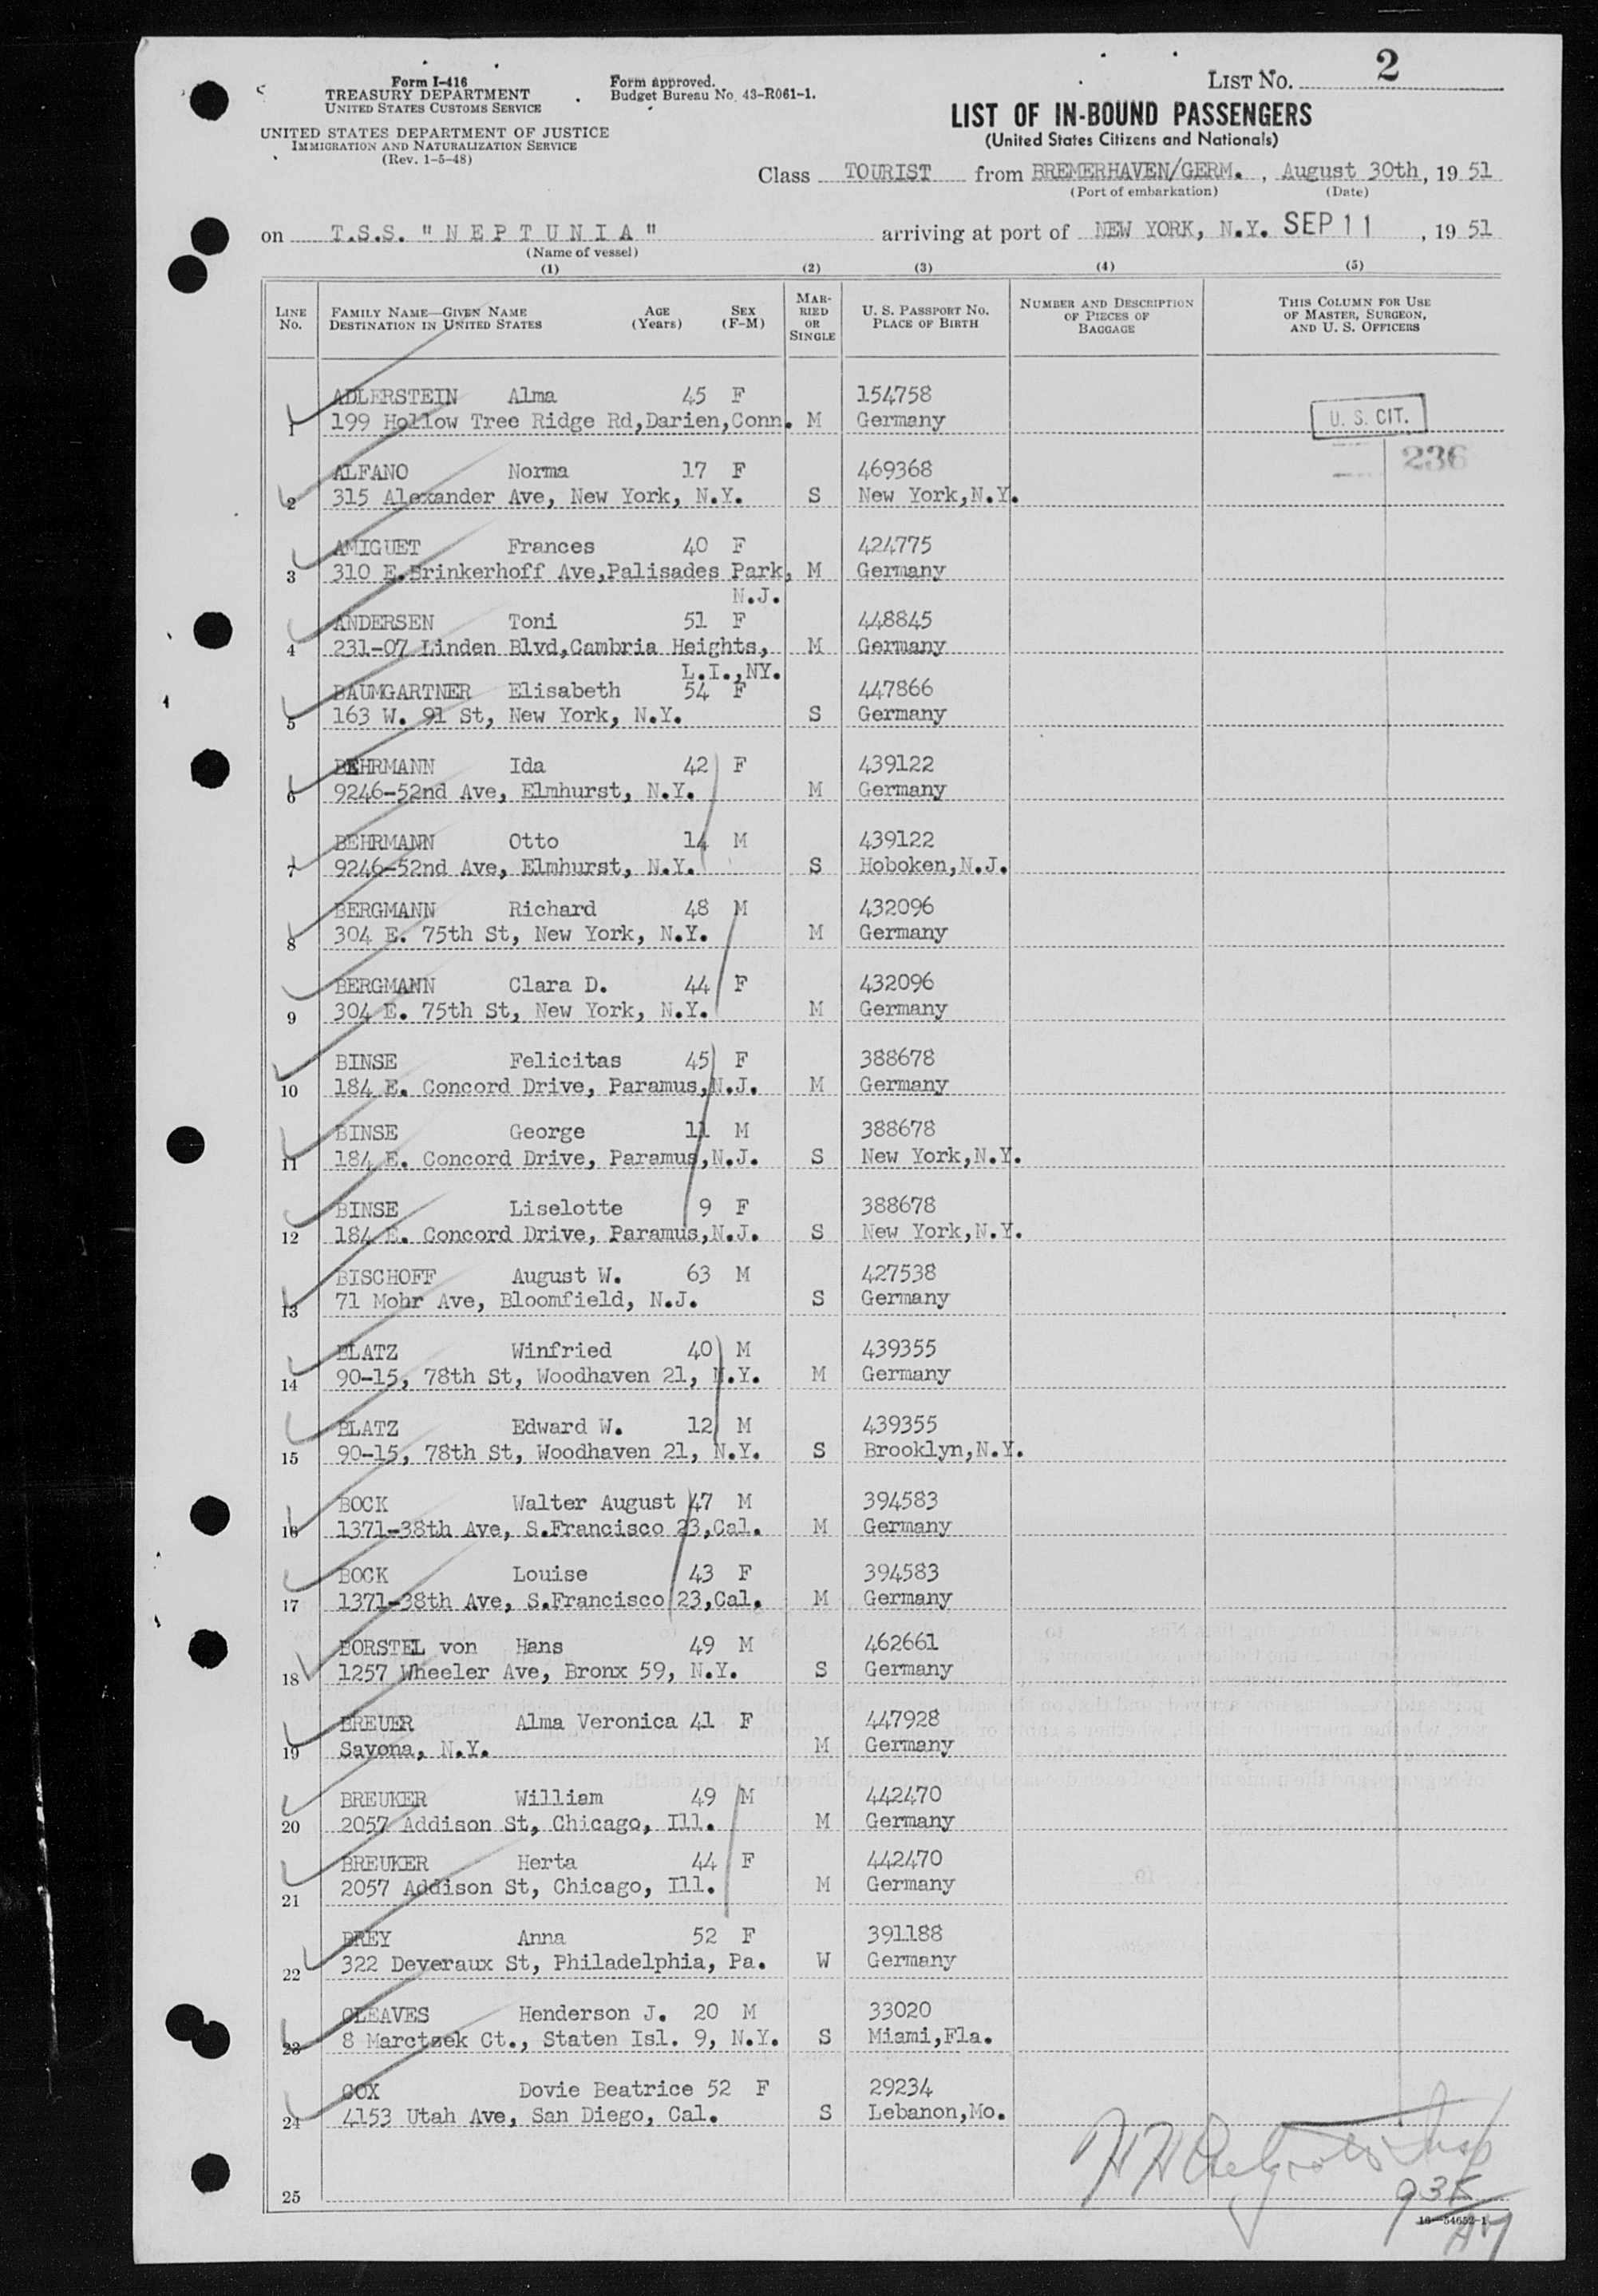 Form I-416
TREASURY DEPARTMENT
UNITED STATES CUSTOMS SERVICE
UNITED STATES DEPARTMENT OF JUSTICE
IMMIGRATION AND NATURALIZATION SERVICE
(Rev. 1-5-48)
Form approved.
Budget Bureau No. 43-R061-1.
LIST NO. 2
LIST OF IN-BOUND PASSENGERS
(United States Citizens and Nationals)
Class TOURIST from BREMERHAVEN/GERM. , August 30th, 19 51
(Port of embarkation) (Date)
on T.S.S. "NEPTUNIA" arriving at port of NEW YORK, N.Y. SEP 11 , 19 51
(Name of vessel)
(1) (2) (3) (4) (5)
LINE No. FAMILY NAME—GIVEN NAME DESTINATION IN UNITED STATES AGE (Years) SEX (F-M) MARRIED OR SINGLE U. S. PASSPORT NO. PLACE OF BIRTH NUMBER AND DESCRIPTION OF PIECES OF BAGGAGE THIS COLUMN FOR USE OF MASTER, SURGEON, AND U. S. OFFICERS
ADLERSTEIN Alma 45 F 154758
1 199 Hollow Tree Ridge Rd,Darien,Conn. M Germany U. S. CIT.
236
ALFANO Norma 17 F 469368
2 315 Alexander Ave, New York, N.Y. S New York,N.Y.
AMIGUET Frances 40 F 424775
3 310 E.Brinkerhoff Ave,Palisades Park, M Germany
N.J.
ANDERSEN Toni 51 F 448845
4 231-07 Linden Blvd,Cambria Heights, M Germany
L.I.,NY.
BAUMGARTNER Elisabeth 54 F 447866
5 163 W. 91 St, New York, N.Y. S Germany
BEHRMANN Ida 42 F 439122
6 9246-52nd Ave, Elmhurst, N.Y. M Germany
BEHRMANN Otto 14 M 439122
7 9246-52nd Ave, Elmhurst, N.Y. S Hoboken,N.J.
BERGMANN Richard 48 M 432096
8 304 E. 75th St, New York, N.Y. M Germany
BERGMANN Clara D. 44 F 432096
9 304 E. 75th St, New York, N.Y. M Germany
BINSE Felicitas 45 F 388678
10 184 E. Concord Drive, Paramus,N.J. M Germany
BINSE George 11 M 388678
11 184 E. Concord Drive, Paramus,N.J. S New York,N.Y.
BINSE Liselotte 9 F 388678
12 184 E. Concord Drive, Paramus,N.J. S New York,N.Y.
BISCHOFF August W. 63 M 427538
13 71 Mohr Ave, Bloomfield, N.J. S Germany
BLATZ Winfried 40 M 439355
14 90-15, 78th St, Woodhaven 21, N.Y. M Germany
BLATZ Edward W. 12 M 439355
15 90-15, 78th St, Woodhaven 21, N.Y. S Brooklyn,N.Y.
BOCK Walter August 47 M 394583
16 1371-38th Ave, S.Francisco 23,Cal. M Germany
BOCK Louise 43 F 394583
17 1371-38th Ave, S.Francisco 23,Cal. M Germany
BORSTEL von Hans 49 M 462661
18 1257 Wheeler Ave, Bronx 59, N.Y. S Germany
BREUER Alma Veronica 41 F 447928
19 Savona, N.Y. M Germany
BREUKER William 49 M 442470
20 2057 Addison St, Chicago, Ill. M Germany
BREUKER Herta 44 F 442470
21 2057 Addison St, Chicago, Ill. M Germany
BREY Anna 52 F 391188
22 322 Deveraux St, Philadelphia, Pa. W Germany
CLEAVES Henderson J. 20 M 33020
23 8 Marctzek Ct., Staten Isl. 9, N.Y. S Miami,Fla.
COX Dovie Beatrice 52 F 29234
24 4153 Utah Ave, San Diego, Cal. S Lebanon,Mo.
25
16—54652-1